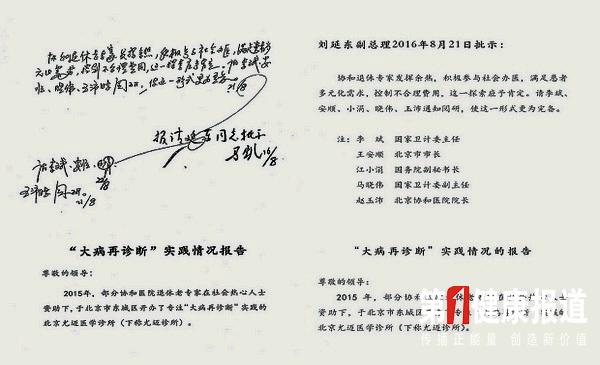 协和退休专家发挥余热，积极参与社会办医，满足患者多
元化需求，控制不合理费用，这一探索应予肯定。
21/8
报请延东同志批示
马凯 16/8
21/8
“大病再诊断”实践情况报告
尊敬的领导：
2015年，部分协和医院退休老专家在社会热心人士
赞助下，于北京市东城区开办了专注“大病再诊断”实践的
北京尤迈医学诊所（下称尤迈诊所）。
刘延东副总理2016年8月21日批示：
协和退休专家发挥余热，积极参与社会办医，满足患者
多元化需求，控制不合理费用，这一探索应予肯定。请李斌、
安顺、小涓、晓伟、玉沛通知阅研，使这一形式更为完备。
注：李 斌 国家卫计委主任
王安顺 北京市市长
江小涓 国务院副秘书长
马晓伟 国家卫计委副主任
赵玉沛 北京协和医院院长
“大病再诊断”实践情况的报告
尊敬的领导：
2015 年，部分协和医院退休老
赞助下，于北京市东城区
北京尤迈医学诊所（下称尤迈诊所）。
第1健康报道
传播正能量 创造新价值